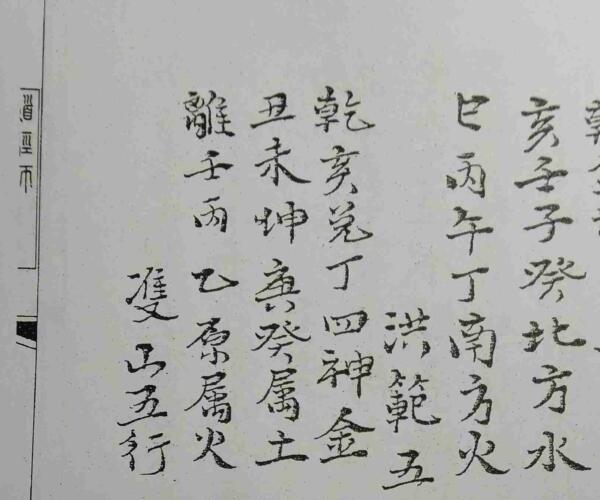 亥壬子癸北方水
巳丙午丁南方火
洪範五
乾亥兌丁四神金
丑未坤庚癸属土
離壬丙乙原属火
雙山五行